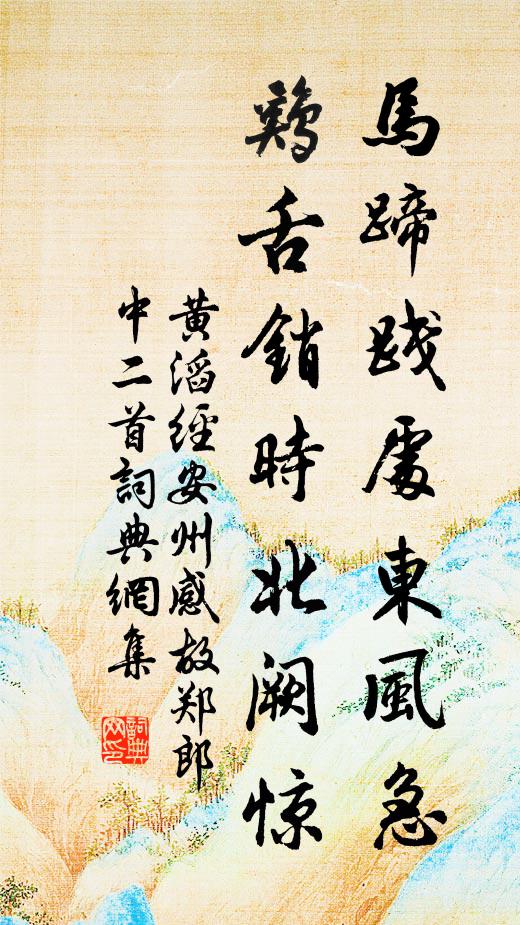 馬蹄踐處東風急
鷄舌銷時北闕惊
黄滔經安州感故郑郎
中二首詞典網集
詞典
网印